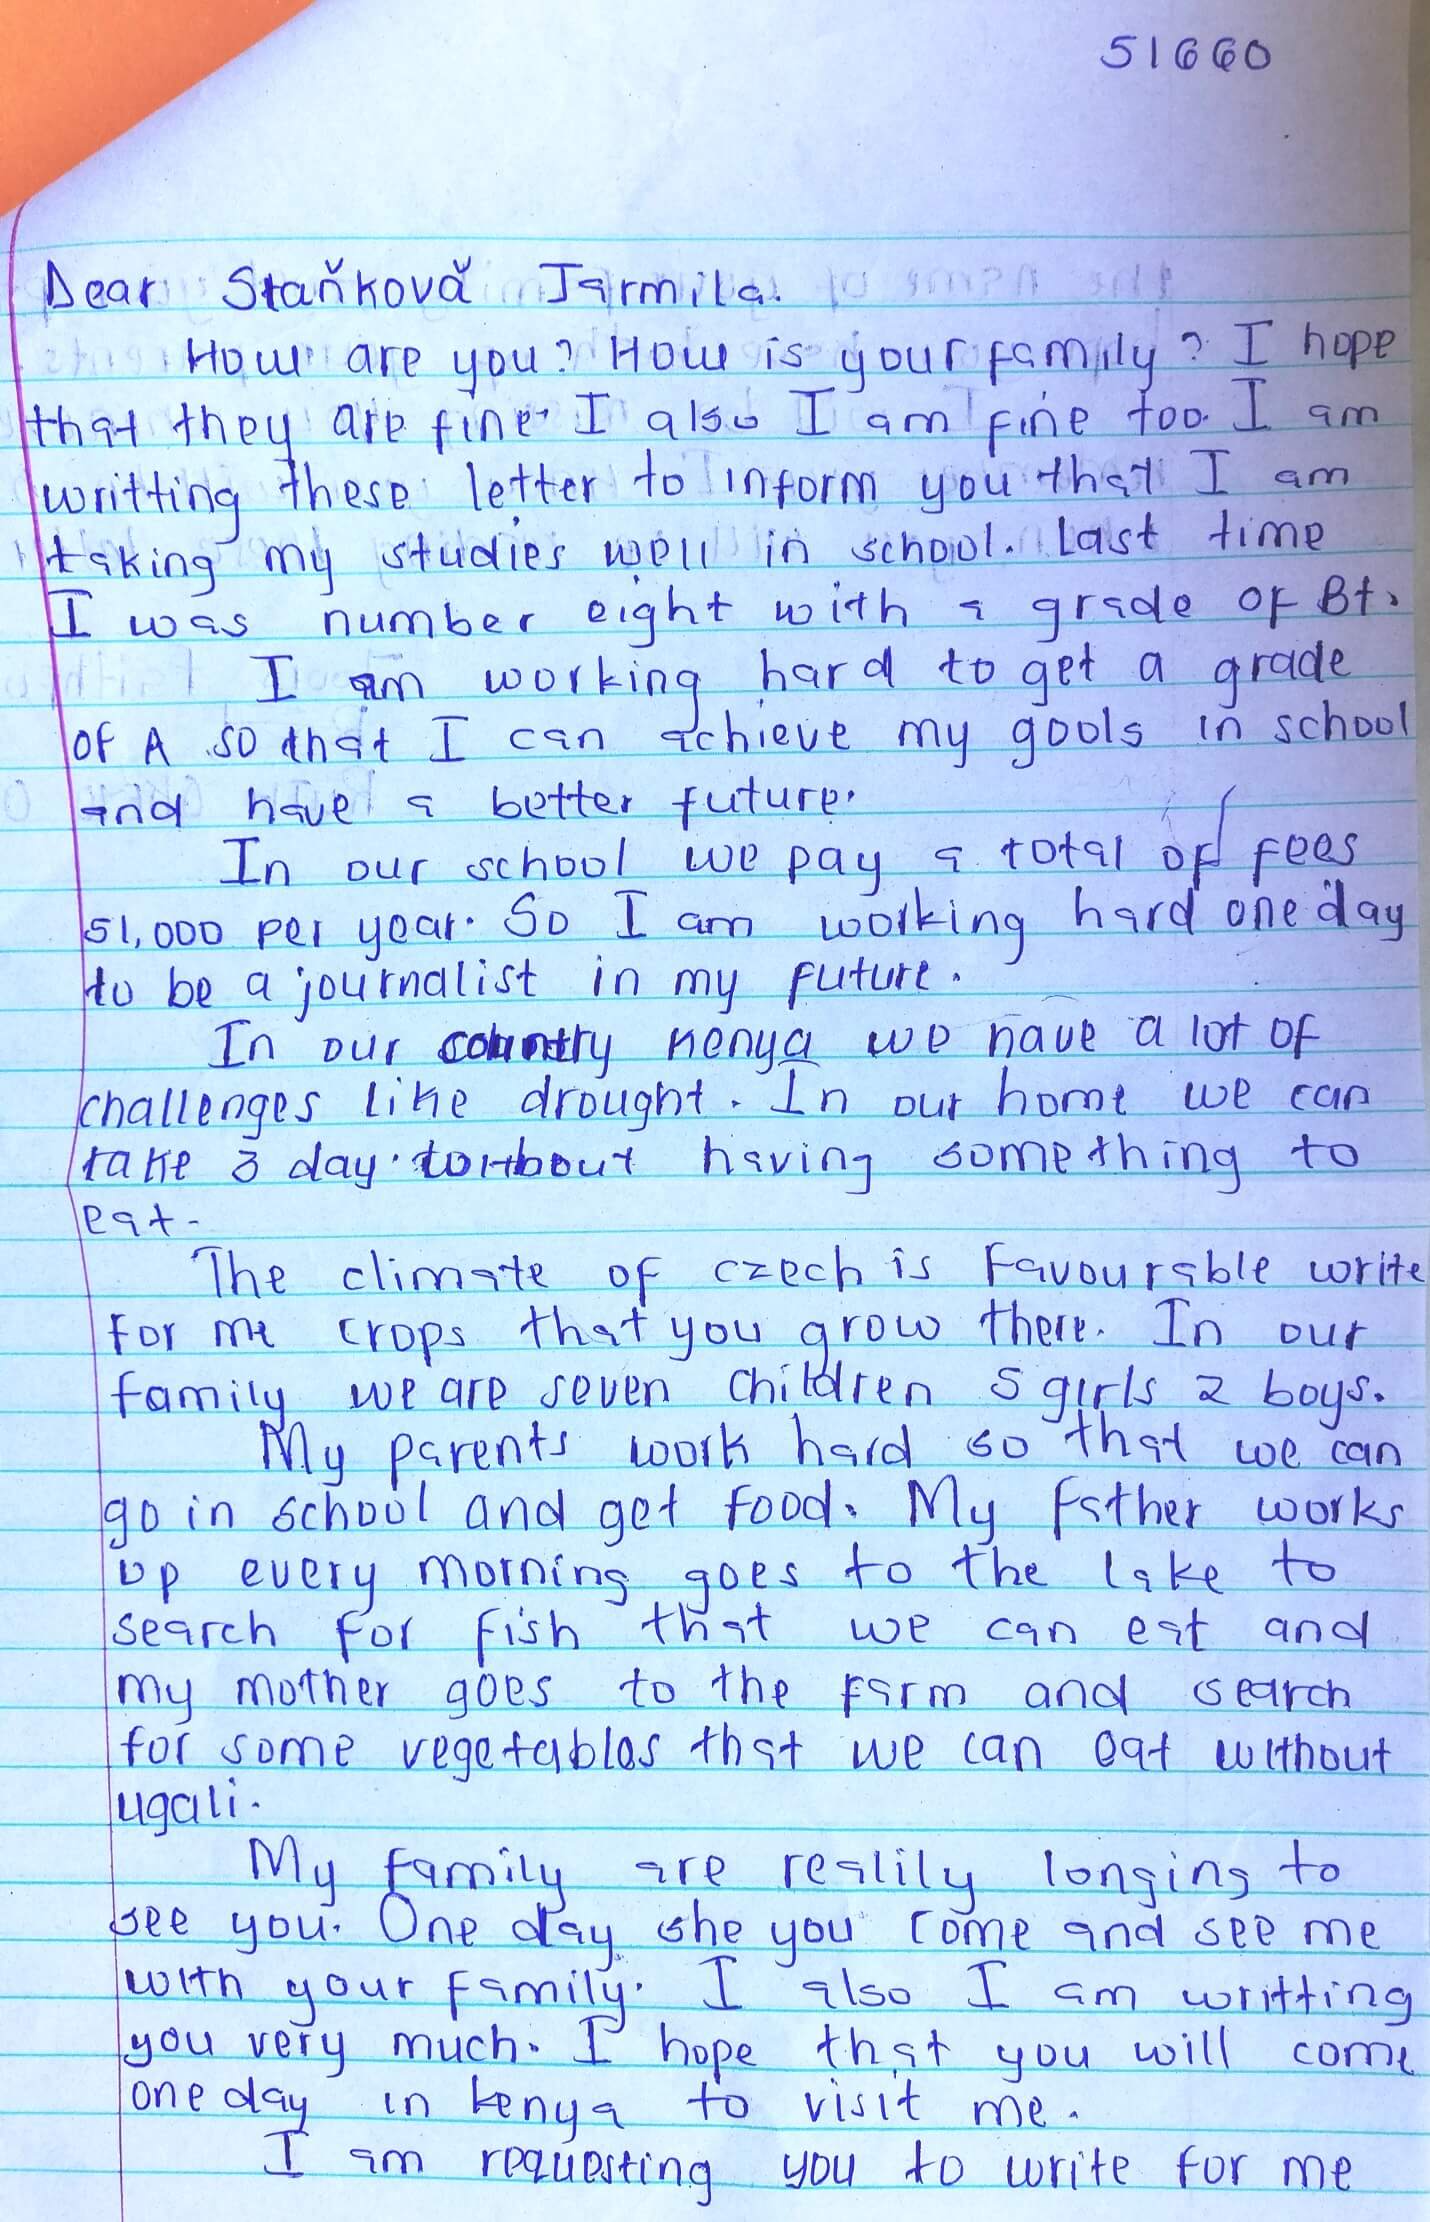 51660
Dear Staňková̌ Jarmila.
How are you? How is your family? I hope
that they are fine. I also I am fine too. I am
writting these letter to inform you that I am
taking my studies well in school. Last time
I was number eight with a grade of B+.
I am working hard to get a grade
of A so that I can achieve my gools in school
and have a better future.
In our school we pay a total of fees
51,000 per year. So I am working hard one day
to be a journalist in my future.
In our country kenya we have a lot of
challenges like drought. In our home we can
take 3 day. without having something to
eat.
The climate of czech is favourable write
for me crops that you grow there. In our
family we are seven children 5 girls 2 boys.
My parents work hard so that we can
go in school and get food. My father works
up every morning goes to the lake to
search for fish that we can eat and
my mother goes to the farm and search
for some vegetables that we can eat without
ugali.
My family are realily longing to
see you. One day she you come and see me
with your family. I also I am writting
you very much. I hope that you will come
one day in kenya to visit me.
I am requesting you to write for me